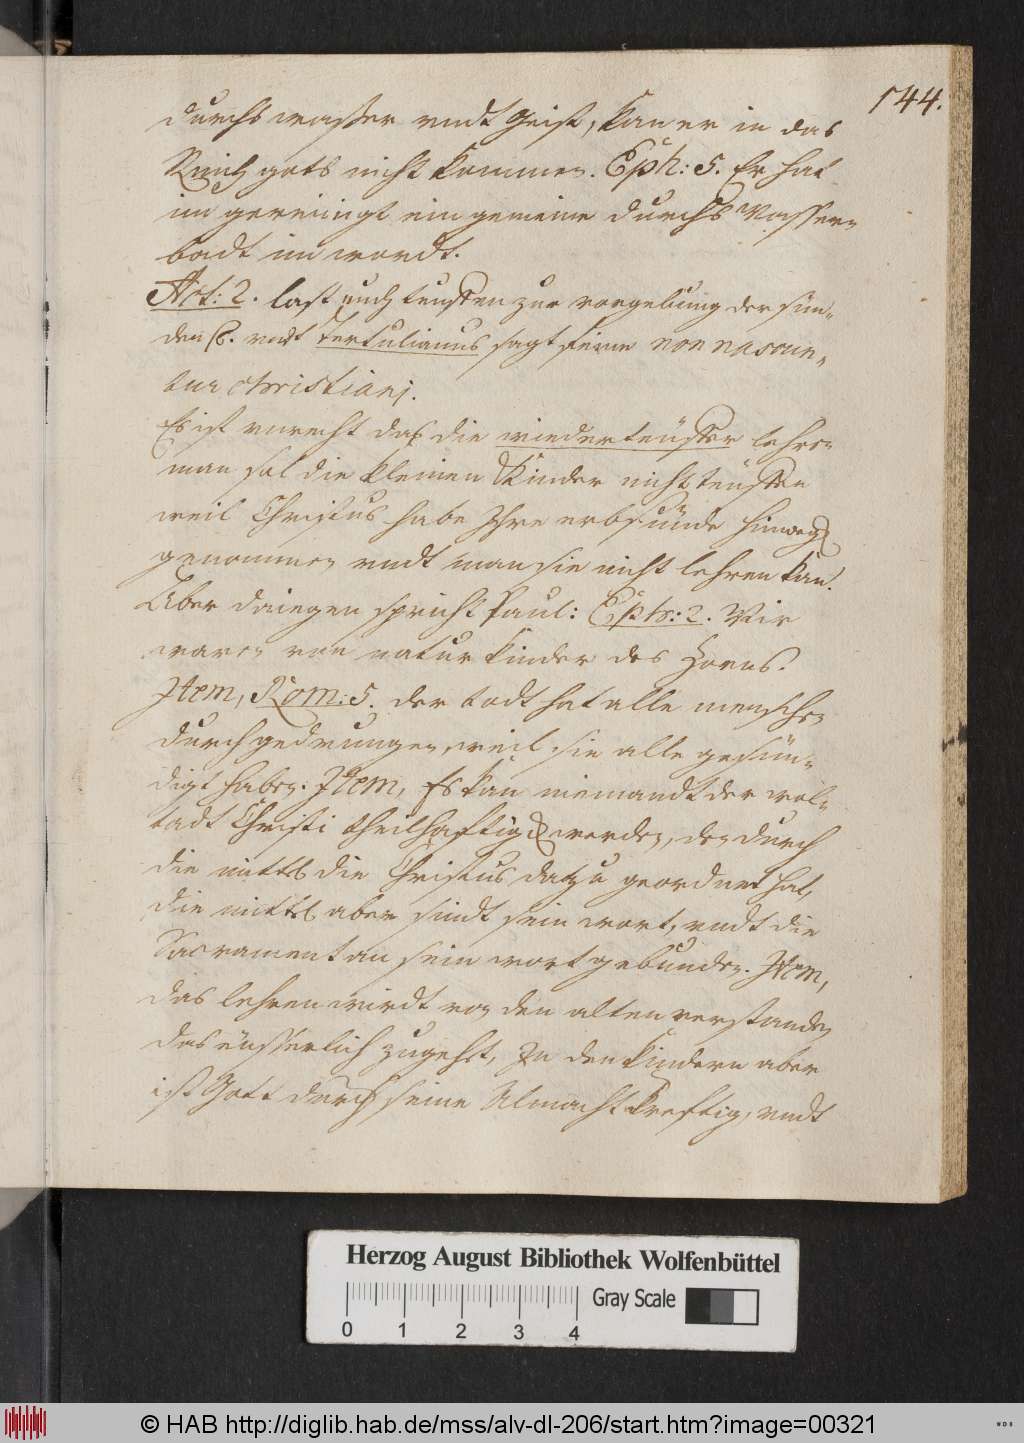 144.
durchs wasser vndt Geist, kan er in das
Reich gots nicht kommen. Eph: 5. Er hat
im gereinigt ein gemeine durchs Wasser=
badt im wordt.
Act: 2. last euch teuffen zur vorgebung der sün=
den vndt Tertulianus sagt feine non nascun=
tur christiani.
Es ist vnrecht das die wiederteüffer lehren
man sol die kleinen Kinder nicht teüffen
weil Christus habe Ihre erbsünde hinweg
genommen vndt man sie nicht lehren kan.
Aber daiegen spricht Paul: Eph: 2. Wir
waren von natur kinder des Zorns.
Item, Rom: 5. der todt hat alle menschen
durchgedrungen, weil sie alle gesün=
digt haben. Item, Es kan niemandt der wol=
tadt Christi theilhafftig werden, den durch
die mittel die Christus datzu geordnet hat,
die mittel aber sindt sein wort, vndt die
Sacrament an sein wort gebunden. Item,
das lehren wirdt von den alten verstanden
das eüsserlich zugehet, In den kindern aber
ist Gott durch seine Almacht krefftig, vndt
Herzog August Bibliothek Wolfenbüttel
Gray Scale
0 1 2 3 4
© HAB http://diglib.hab.de/mss/alv-dl-206/start.htm?image=00321